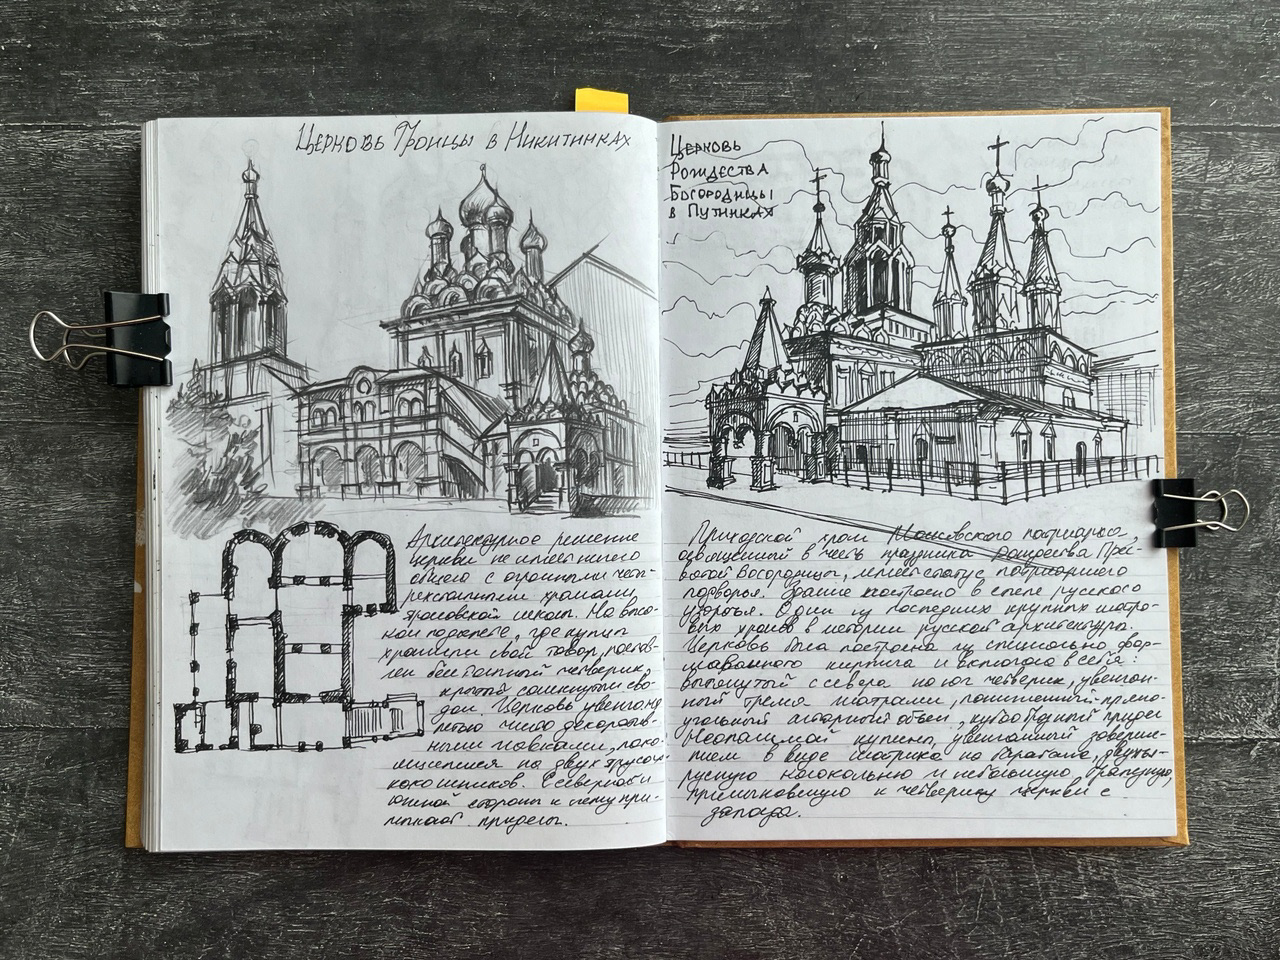 Церковь Троицы в Никитинках
Архитектурное решение
церкви не имеет ничего
общего с огромными четы-
рехстолпными храмами
московской
На высо-
ком подклете, где купцы
хранили свой товар, постав-
лен бесстолпный четверик,
крытый сомкнутым сво-
дом. Церковь увенчана
пятью чисто декоратив-
ными главками, поко-
ящемися на двух ярусах
кокошников. С северной и
южной стороны к нему при-
мыкают приделы.
Церковь
Рождества
Богородицы
в Путинках
Приходской храм Московского патриарха,
освященный в честь праздника Рождества Прес-
вятой Богородицы, имеет статус патриаршего
подворья. Здание построено в стиле русского
узорочья. Один из последних крупных шатро-
вых храмов в истории русской архитектуры.
Церковь была построена из специально фор-
мованного кирпича и включала в себя:
вытянутый с севера на юг четверик, увенчан-
ный тремя шатрами, пониженный прямо-
угольный алтарный объем, кубообразный придел
Неопалимой купины, увенчанный заверше-
нием в виде шатрика на барабане, двухъя-
русную колокольню и небольшую трапезную,
примыкавшую к четверику церкви с
запада.